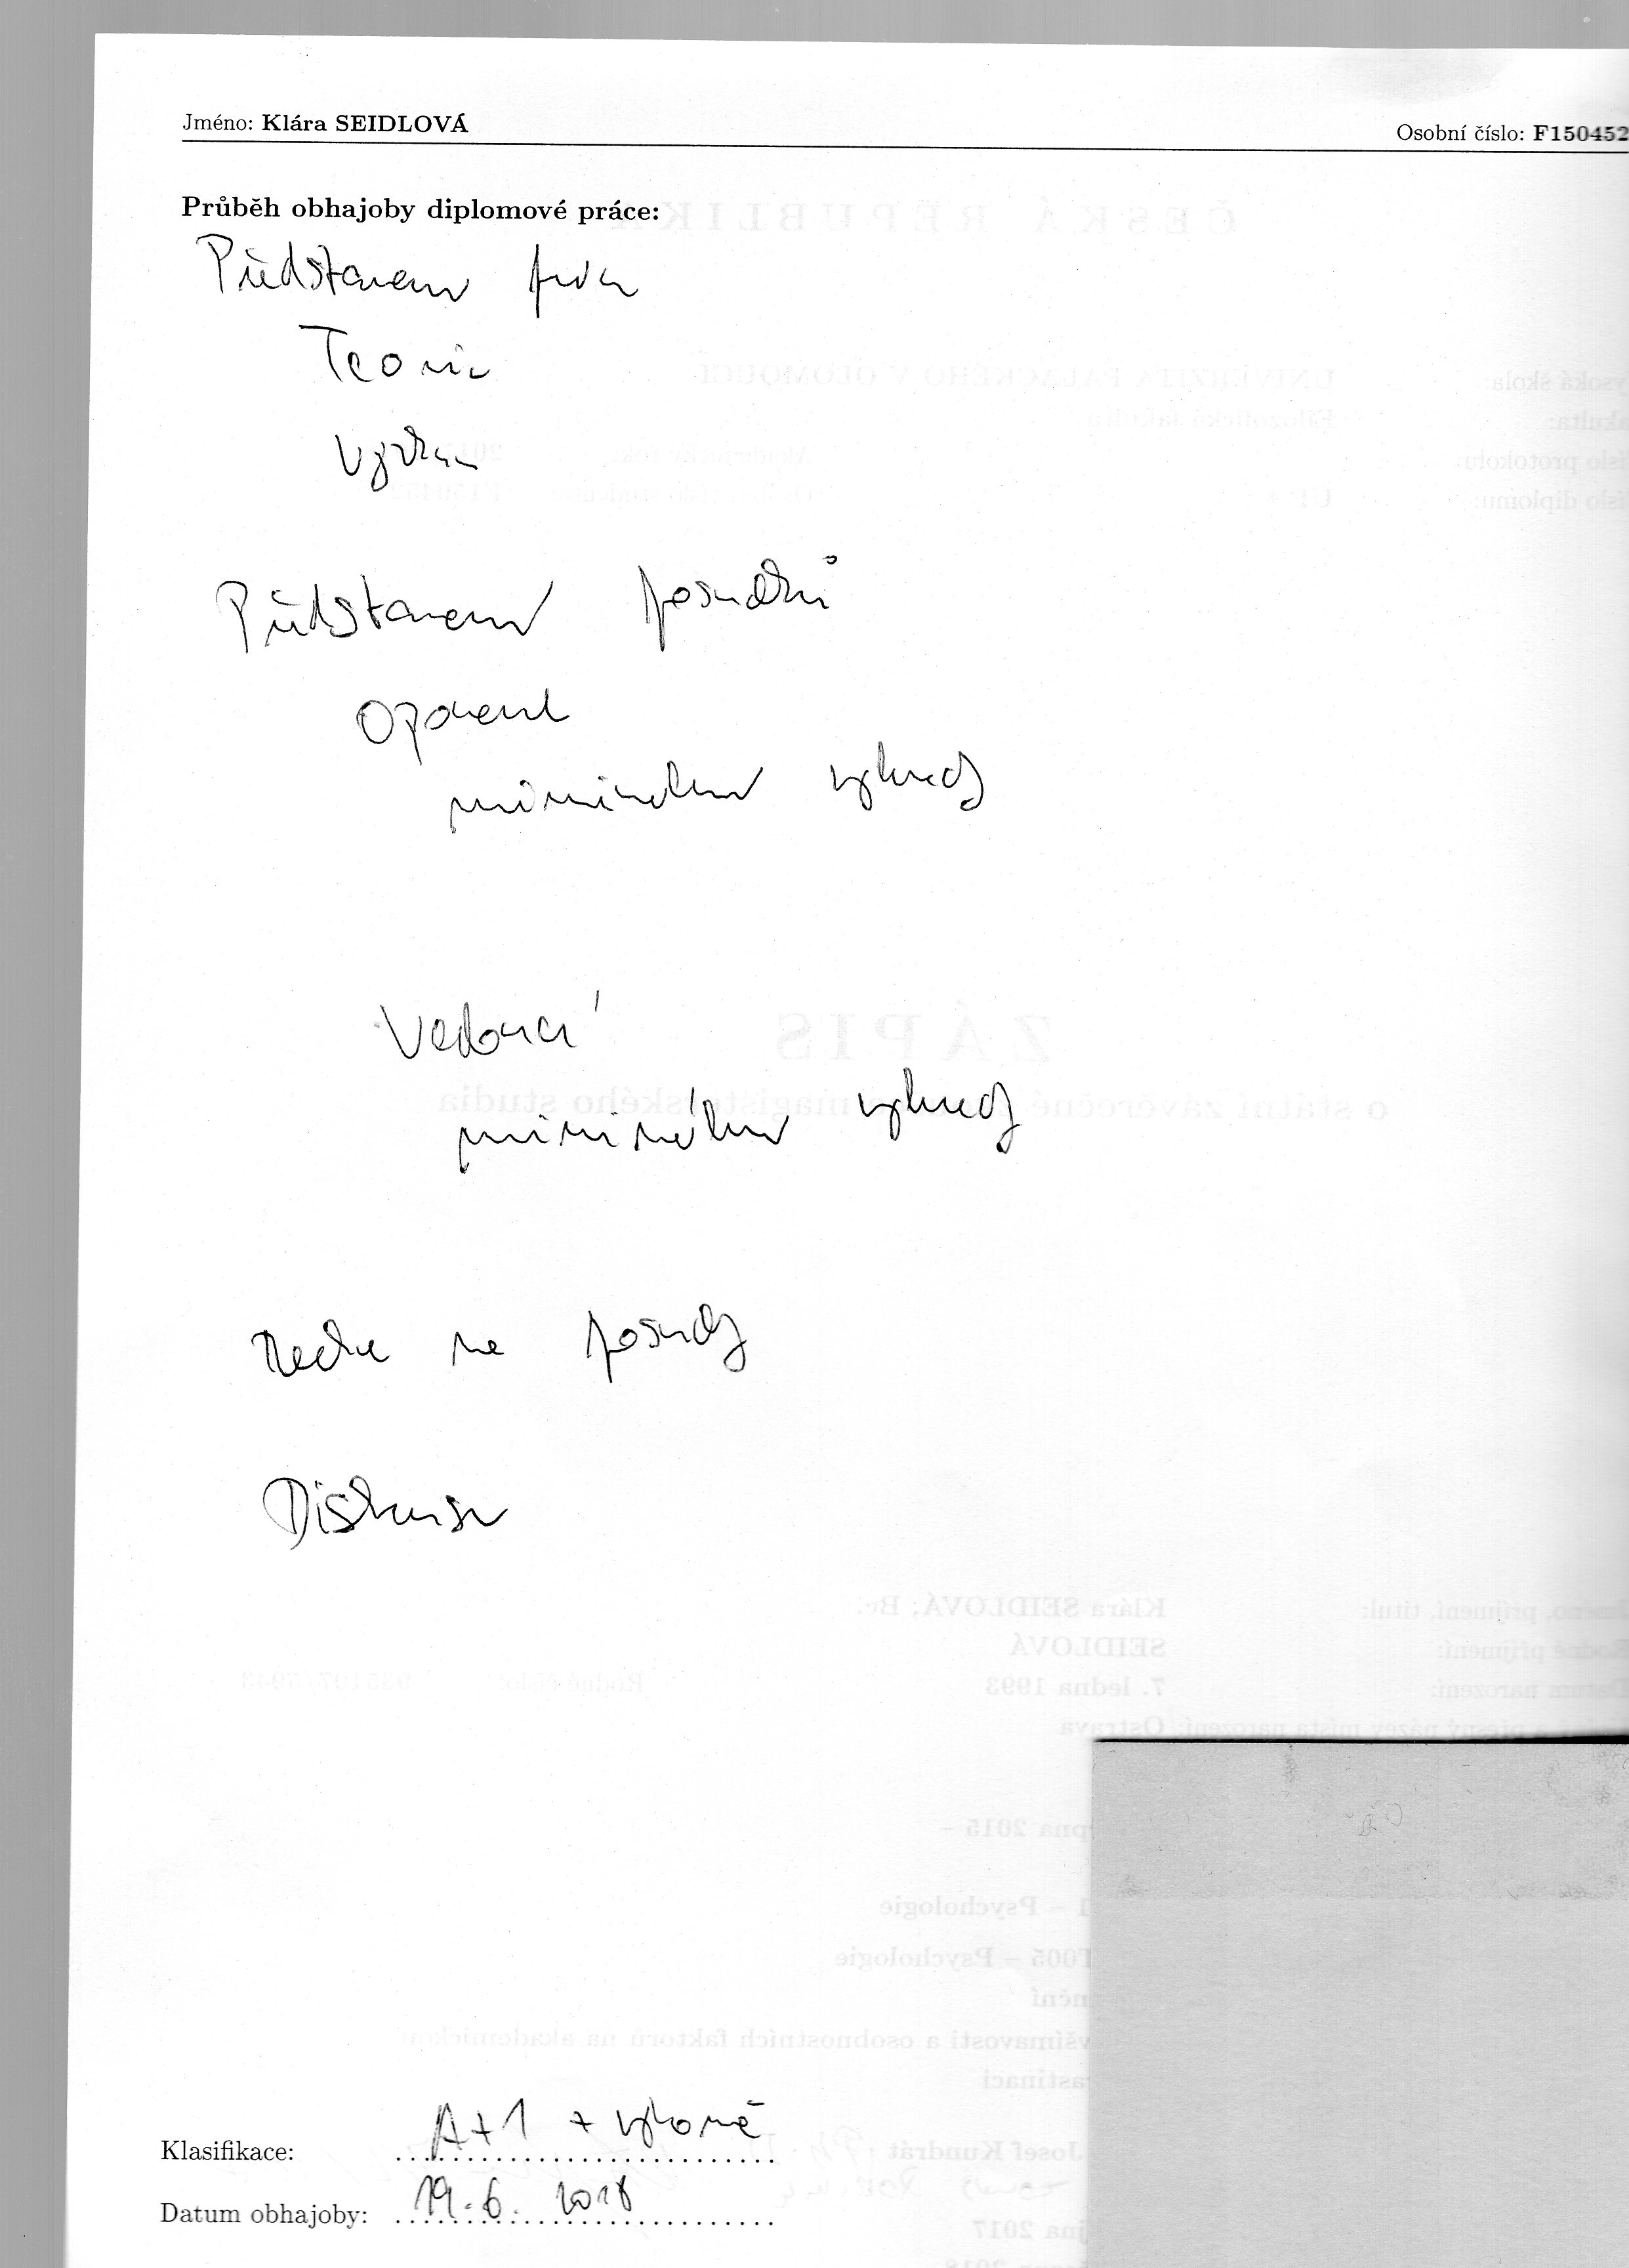 Jméno: Klára SEIDLOVÁ Osobní číslo: F150452
Průběh obhajoby diplomové práce:
Představení práce
Teorie
Výzkum
Představení posudků
Oponent
minimální výhrady
Vedoucí
minimální výhrady
Reakce na posudky
Diskuse
Klasifikace: A + 1 + výborně
Datum obhajoby: 19. 6. 2018